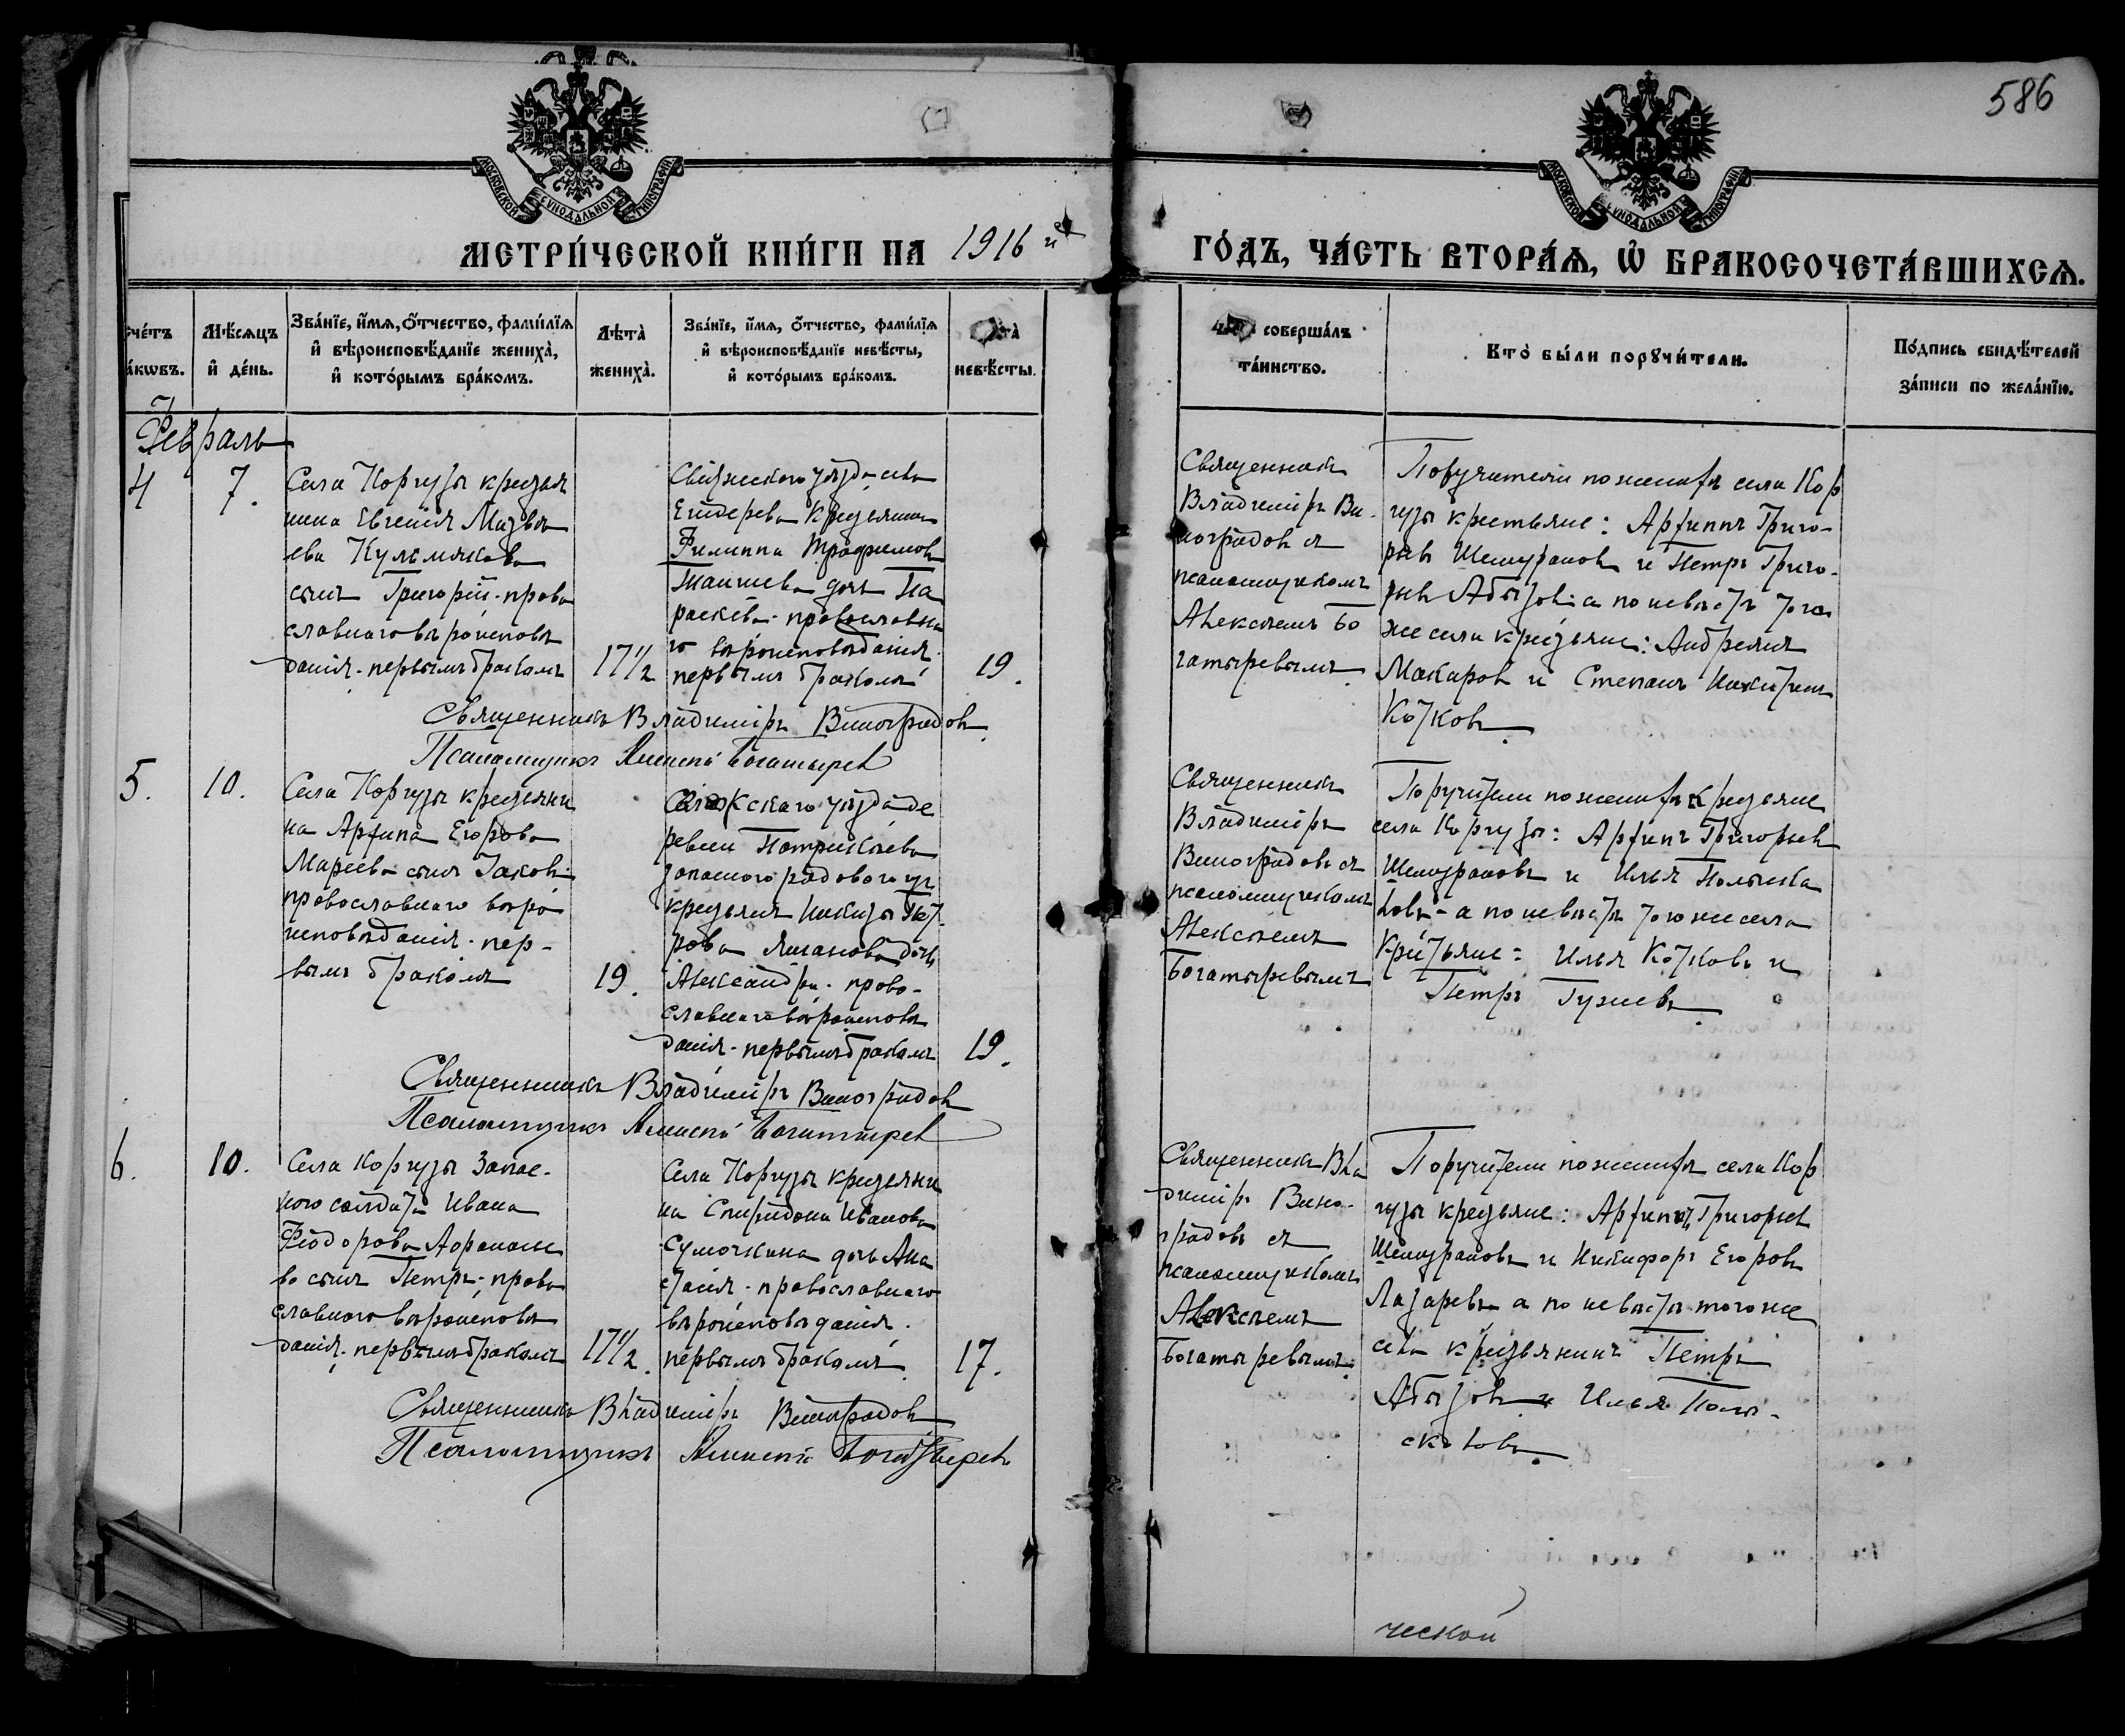 586
МОСКОВСКОЙ СѴНОДАЛЬНОЙ ТИПОГРАФІИ
МОСКОВСКОЙ СѴНОДАЛЬНОЙ ТИПОГРАФІИ
МЕТРИ́ЧЕСКОЙ КНИ́ГИ НА 1916 й
ГО́ДЪ, ЧА́СТЬ ВТОРА́Ѧ, Ѿ БРАКОСОЧЕТА́ВШИХСѦ.
Счéтъ
áкωвъ.
Мѣ́сѧцъ
и҆ де́нь.
Зва́нїе, и҆́мѧ, ѻ҆́тчество, фами́лїѧ
и҆ вѣроисповѣ́данїе жениха̀,
и҆ кото́рымъ бра́комъ.
Лѣ́та̀
жениха̀.
Зва́нїе, и҆́мѧ, ѻ҆́тчество, фами́лїѧ
и҆ вѣроисповѣ́данїе невѣ́сты,
и҆ кото́рымъ бра́комъ.
невѣ́сты.
соверша́лъ
та́инство.
Кто̀ бы́ли порꙋчи́тели.
По́дпись свидѣ́телей
за́писи по жела́нїю.
Февраль
4
7.
Села Коргузы крестья
нина Евгенія Матвѣ
ева Кульмякова
сынъ Григорій - право
славнаго вѣроисповѣ
данія. первымъ бракомъ
17 1/2
Свіяжскаго уѣзда села
Ендерева крестьянина
Филиппа Трофимова
Таишева дочь Па
раскева - православна
го вѣроисповѣданія.
первымъ бракомъ
19.
Священникъ
Владиміръ Ви-
ноградовъ съ
псаломщикомъ
Алексѣемъ Бо
гатыревымъ.
Поручители по женихѣ села Кор
гузы крестьяне: Архипъ Григо-
рьевъ Шемурановъ и Петръ Григо-
рьевъ Абызовъ: а по невѣстѣ того
же села крестьяне: Андреянъ
Макаровъ и Степанъ Никитинъ
Котковъ.
Священникъ Владиміръ Виноградовъ.
Псаломщикъ Алексѣй Богатыревъ
5.
10.
Села Коргузы крестьяни
на Архипа Егорова
Мареева сынъ Іаковъ:
православнаго вѣро
исповѣданія. пер-
вымъ бракомъ
19.
Свіяжскаго уѣзда де
ревни Патрикѣева
запаснаго рядового изъ
крестьянъ Никиты Пет
рова дочь
Александра. право-
славнаго вѣроисповѣ
данія. первымъ бракомъ
19.
Священникъ
Владиміръ
Виноградовъ съ
псаломщикомъ
Алексѣемъ
Богатыревымъ
Поручители по женихѣ крестьяне
села Коргузы: Архипъ Григорьевъ
Шемурановъ и Илья
ловъ - а по невѣстѣ того же села
Крестьяне: Илья Котковъ и
Петръ Гужевъ.
Священникъ Владиміръ Виноградовъ
Псаломщикъ Алексѣй Богатыревъ
6.
10.
Села Коргузы Запас-
ного солдата Ивана
Феодорова
ва сынъ Петръ; право
славнаго вѣроисповѣ
данія. первымъ бракомъ
17 1/2.
Села Коргузы крестьяни
на Спиридона Иванова
Сумочкина дочь Ана
стасія. православнаго
вѣроисповѣданія.
первымъ бракомъ.
17.
Священникъ Вла
диміръ Вино-
градовъ съ
псаломщикомъ
Алексѣемъ
Богатыревымъ.
Поручители по женихѣ села Кор
гузы крестьяне: Архипъ Григорьевъ
Шемурановъ и Никифоръ Егоровъ
Лазаревъ а по невѣстѣ того же
села крестьянинъ Петръ
Абызовъ и Илья
Священникъ Владиміръ Виноградовъ
Псаломщикъ Алексѣй Богатыревъ
ческой